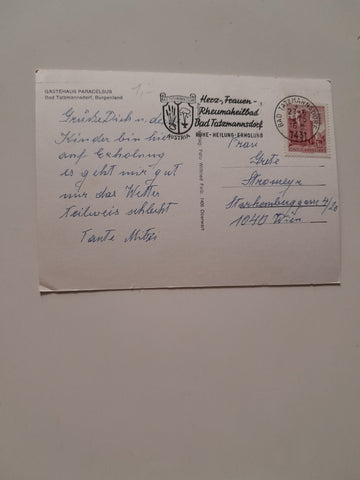 GÄSTEHAUS PARACELSUS
Bad Tatzmannsdorf, Burgenland
1,-
Grüße Dich u. de
Kinder bin hier
auf Erholung
es geht mir gut
nur das Wetter
teilweis schlecht
Tante Mitzi
Herz-, Frauen-,
Rheumaheilbad
Bad Tatzmannsdorf
RUHE - HEILUNG - ERHOLUNG
AUSTRIA
BAD TATZMANNSDORF
7431
Frau
Grete
Stromeyer
Starhemberggasse 4/20
1040 Wien
Foto Willfried Falb, 7400 Oberwart